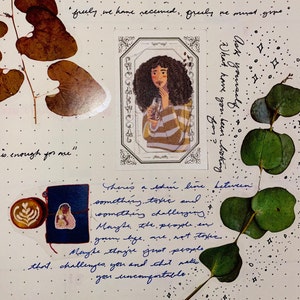 freely we have received, freely we must give
Ask yourself,
What have you been looking
for
is enough for me"
There's a thin line between
something toxic and
something challenging.
Maybe the people in
your life are not toxic.
Maybe they're great people
that challenges you and that makes
you uncomfortable.